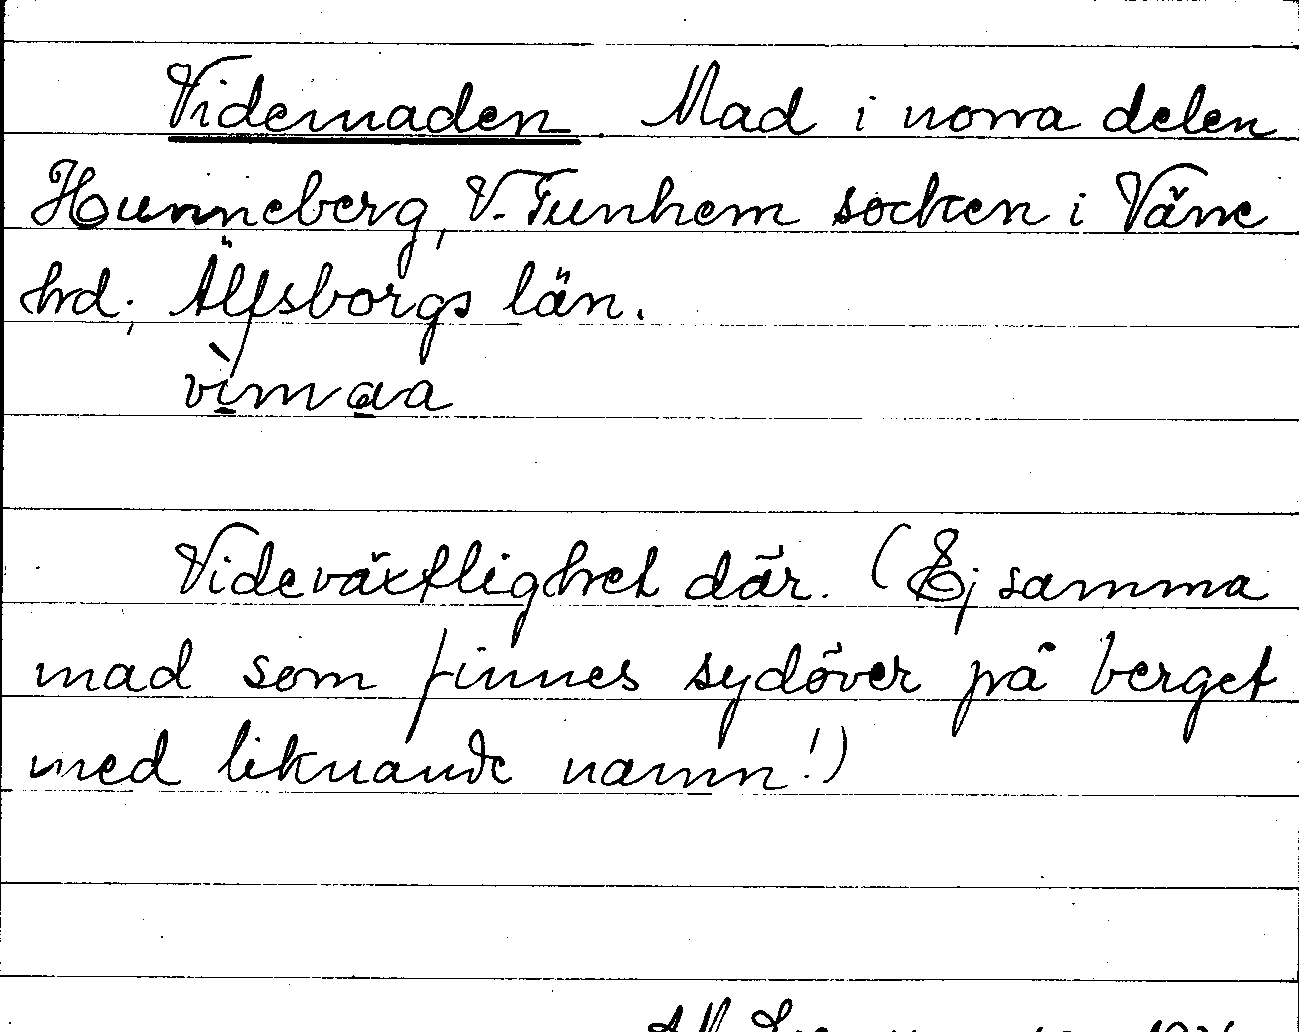 Videmaden. Mad i norra delen
Hunneberg, V. Tunhem socken i Väne
hrd; Älfsborgs län.
vìmaa
Videväxtlighet där. (Ej samma
mad som finnes sydöver på berget
med liknande namn!)